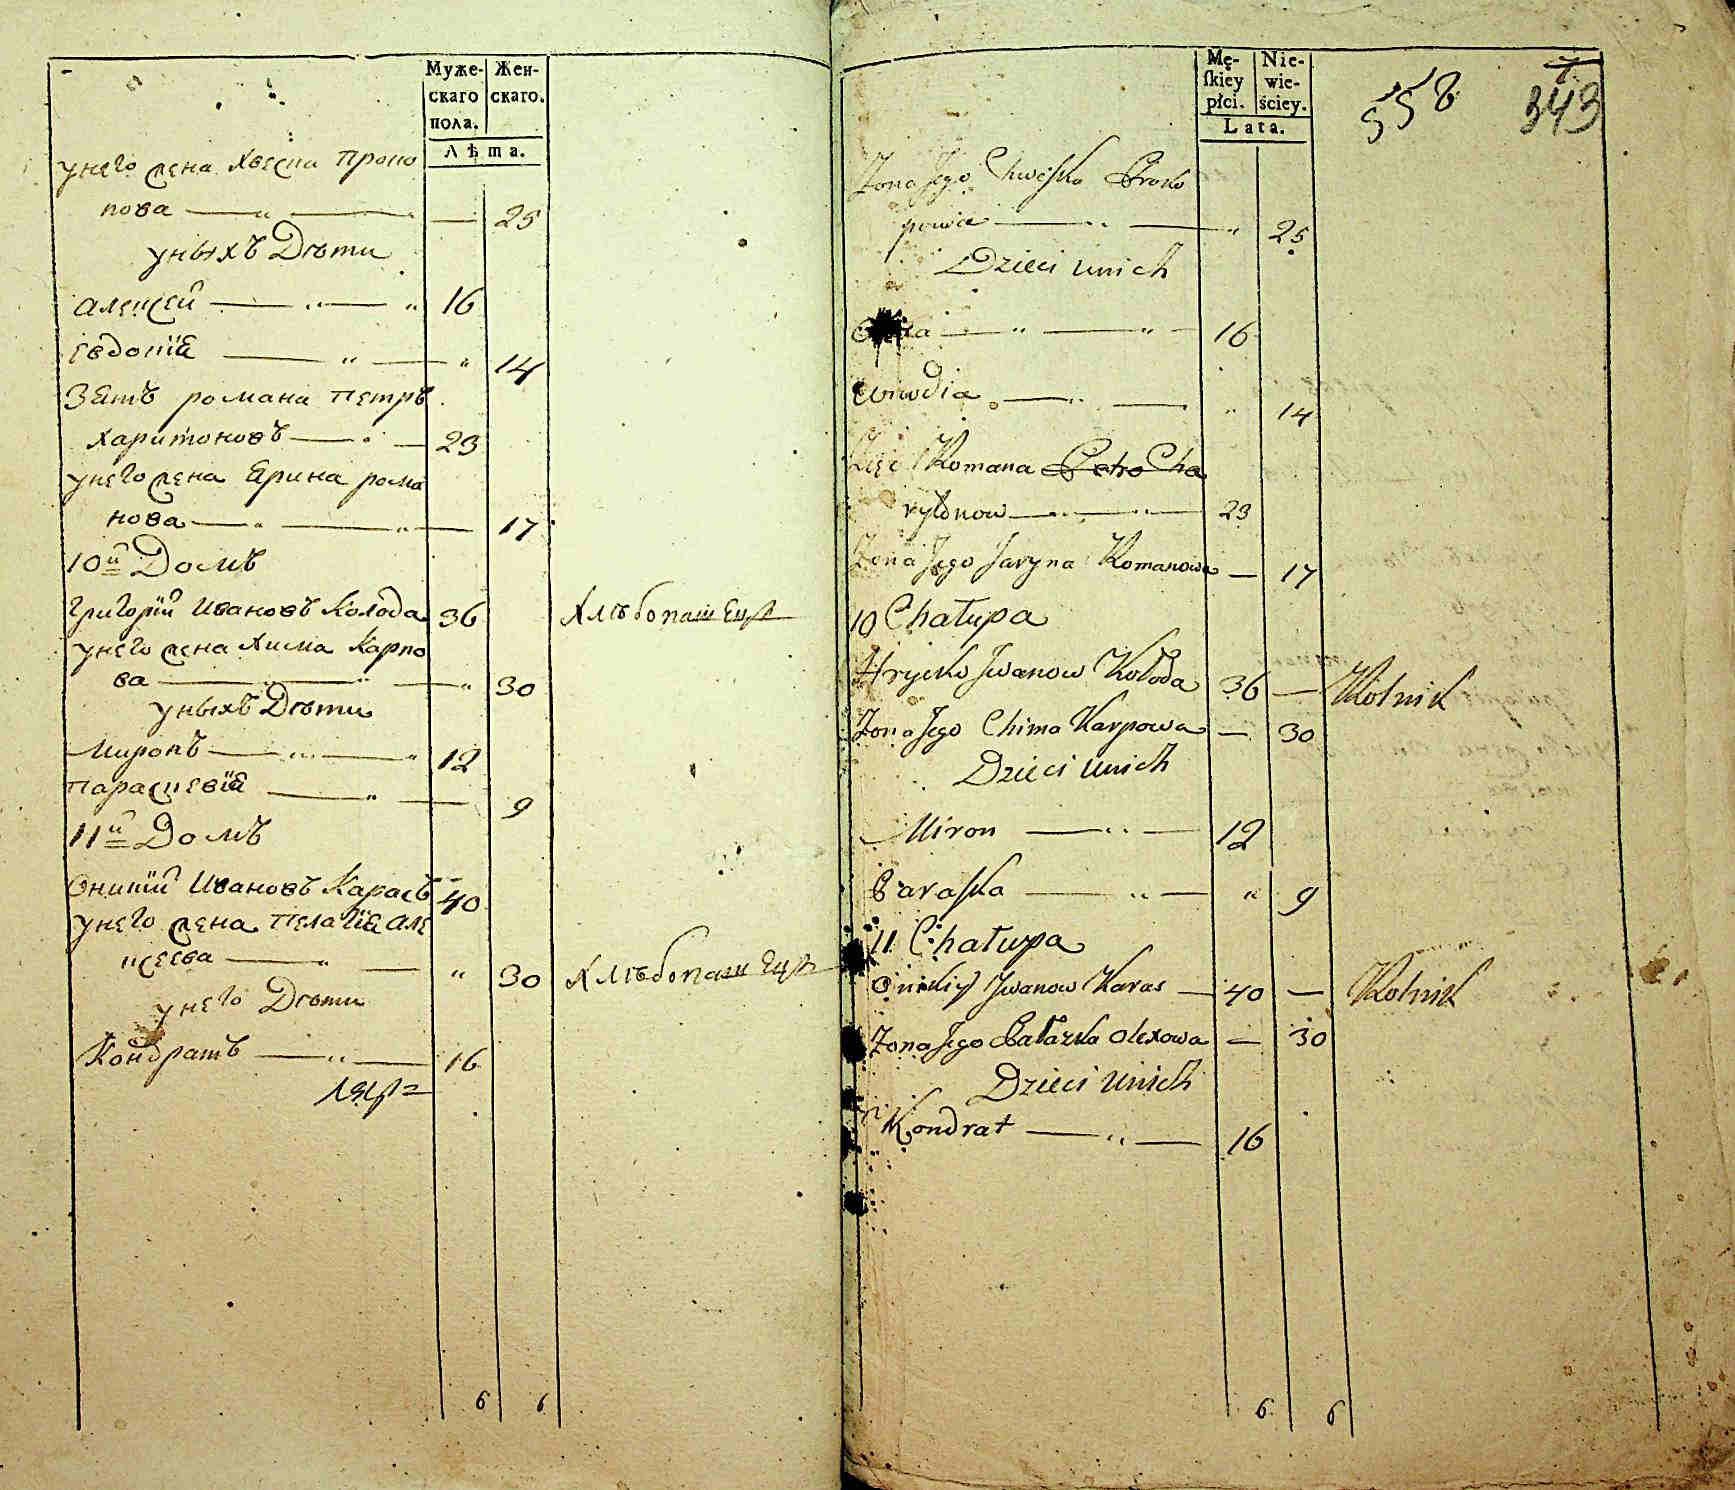 Муже- Жен-
скаго скаго.
пола.
Лѣта.
унего жена Хвеска Проко
пова — „ — — 25
уныхъ Дѣти
Алексей — „ — „ 16
Евдокия — „ — „ 14
Зять романа Петръ
Харитоновъ — „ — 23
унего жена Ярина рома
нова — „ — „ — 17
10й Домъ
Григорий Ивановъ Колода 36 Хлѣбопашецъ
унего жена Хима Карпо
ва — „ — „ — „ 30
уныхъ Дѣти
Миронъ — „ — „ 12
Параскевия — „ — 9
11й Домъ
Оникий Ивановъ Карась 40
унего жена Пелагия Але
ксеева — „ — „ 30 Хлѣбопашецъ
унего Дѣти
Кондратъ — „ — 16
6 6
Mę- Nie-
skiey wie-
płci. ściey.
Lata.
558 343
Zona Jego Chweska Proko
powa — „ — „ 25
Dzieci unich
— „ — „ — 16
Ewodia — „ — „ 14
Zięć Romana Petro Cha
rytonow — „ — „ — 23
Zona Jego Jaryna Romanowa — 17
10 Chałupa
Hrycko Jwanow Kołoda 36 — Rolnik
Zona Jego Chima Karpowa — 30
Dzieci unich
Miron — „ — 12
Paraska — „ — „ 9
11 Chałupa
Onikiy Jwanow Karas — 40 — Rolnik
Zona Jego Pałazka Olexowa — 30
Dzieci unich
Kondrat — „ — 16
6 6